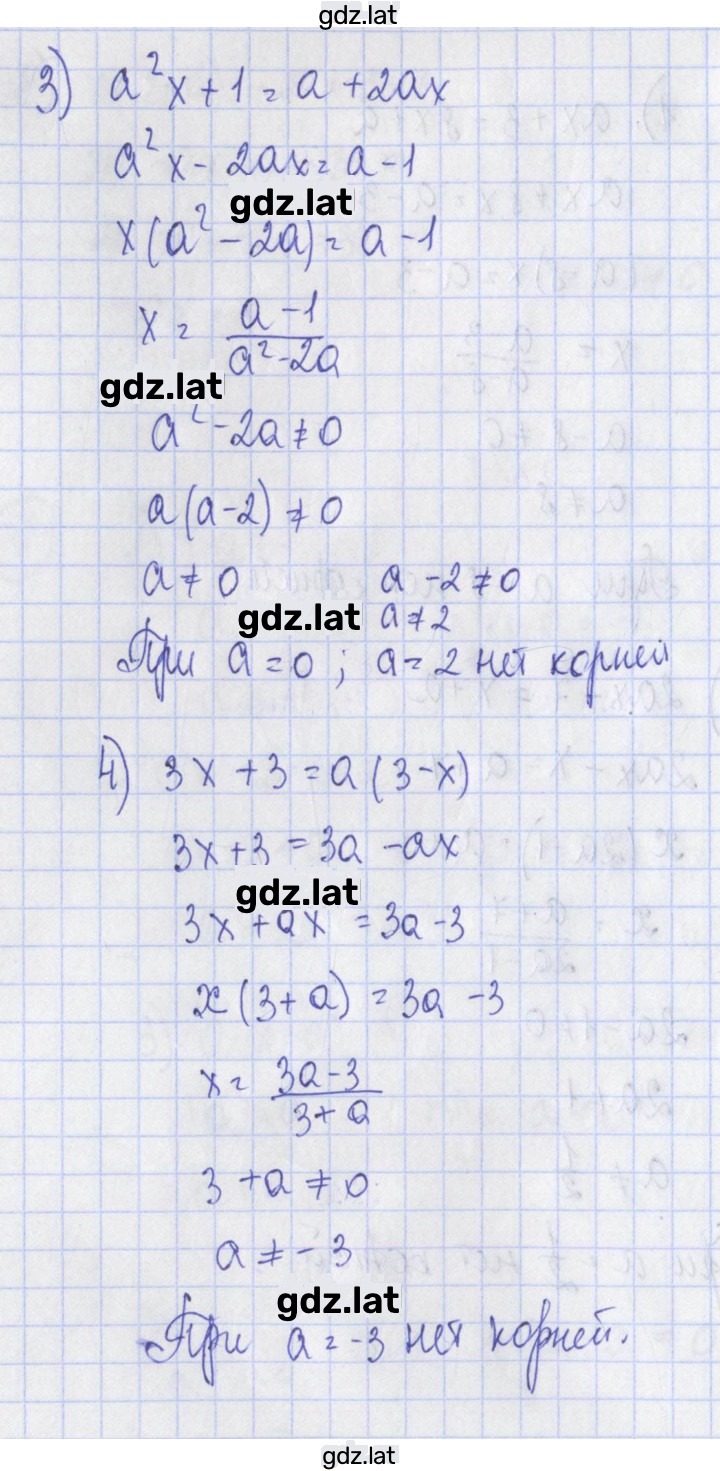 gdz.lat
3) a²x + 1 = a + 2ax
a²x - 2ax = a - 1
gdz.lat
x(a² - 2a) = a - 1
x = \frac{a - 1}{a² - 2a}
gdz.lat
a² - 2a ≠ 0
a(a - 2) ≠ 0
a ≠ 0 a - 2 ≠ 0
gdz.lat a ≠ 2
При a = 0 ; a = 2 нет корней
4) 3x + 3 = a (3 - x)
3x + 3 = 3a - ax
gdz.lat
3x + ax = 3a - 3
x (3 + a) = 3a - 3
x = \frac{3a - 3}{3 + a}
3 + a ≠ 0
a ≠ - 3
gdz.lat
При a = -3 нет корней.
gdz.lat